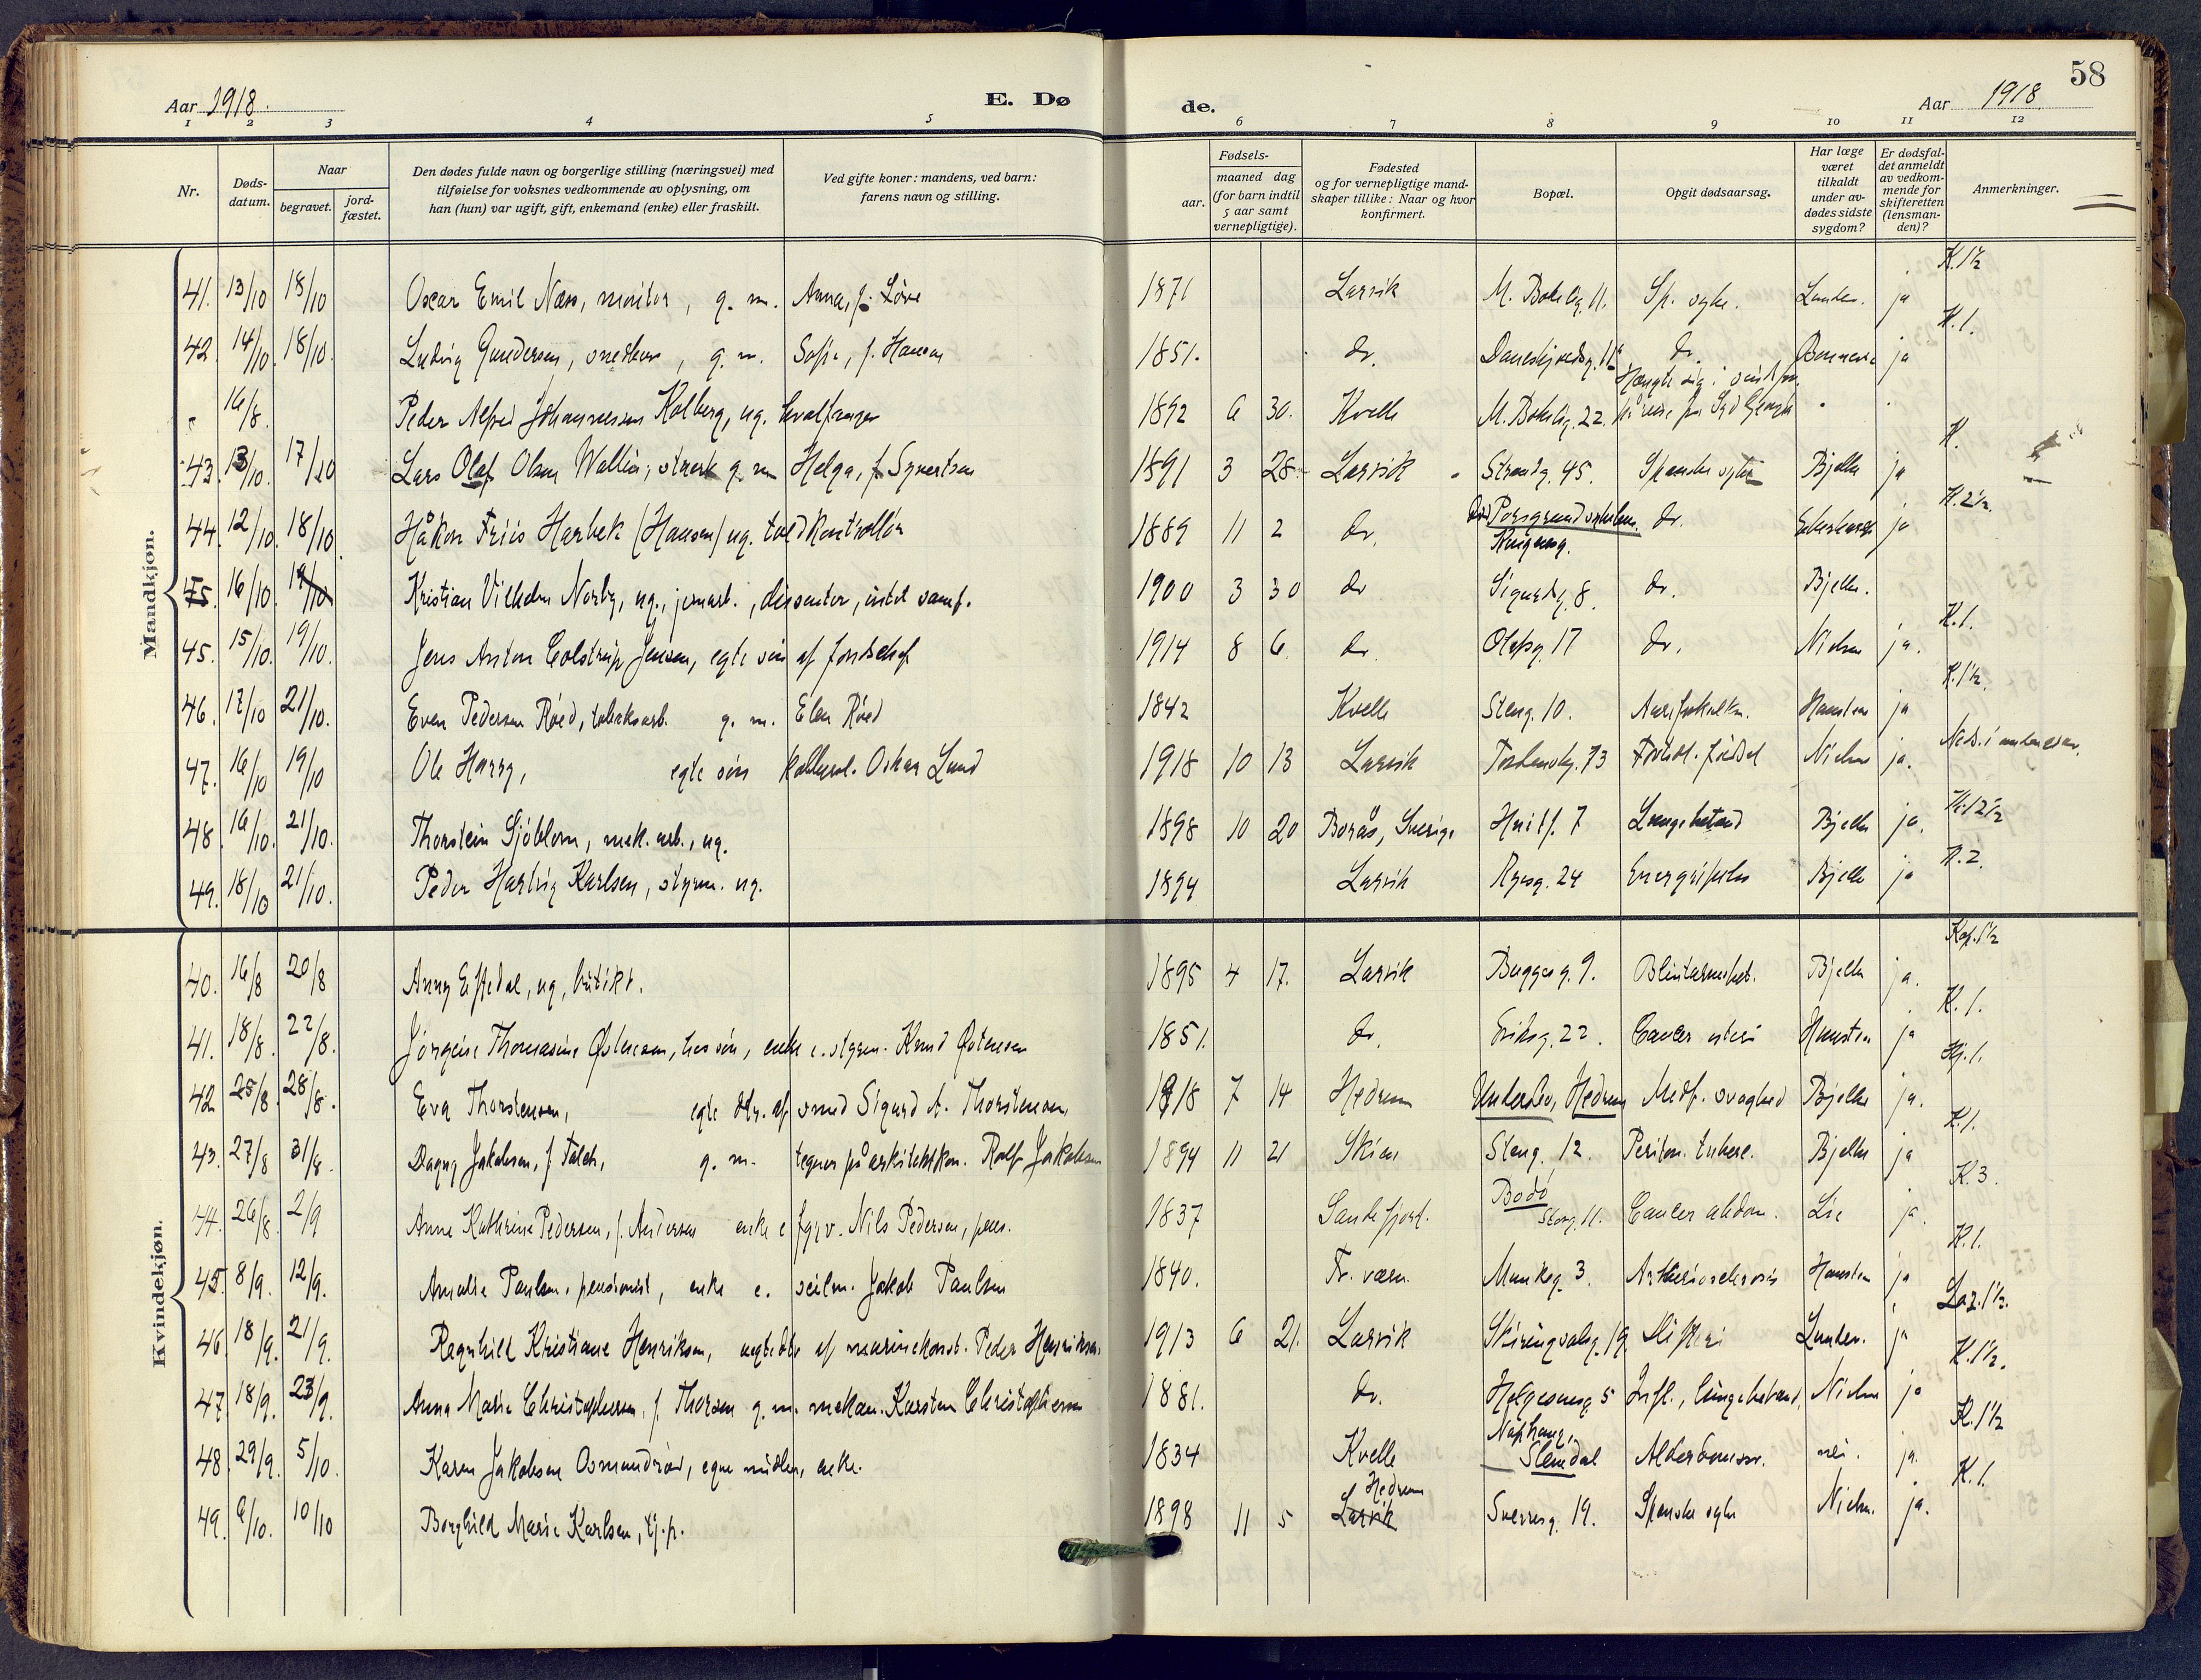 58
Aar 1918. E. Dø de. Aar 1918.
1 2 3 4 5 6 7 8 9 10 11 12
Nr. Døds-datum. Naar begravet. jord-fæstet. Den dødes fulde navn og borgerlige stilling (næringsvei) med tilføielse for voksnes vedkommende av oplysning, om han (hun) var ugift, gift, enkemand (enke) eller fraskilt. Ved gifte koner: mandens, ved barn: farens navn og stilling. Fødsels- aar. maaned dag (for barn indtil 5 aar samt vernepligtige). Fødested og for vernepligtige mand-skaper tillike: Naar og hvor konfirmert. Bopæl. Opgit dødsaarsag. Har læge været tilkaldt under av-dødes sidste sygdom? Er dødsfal-det anmeldt av vedkom-mende for skifteretten (lensman-den)? Anmerkninger.
Mandkjøn.
41. 13/10 18/10 Oscar Emil Næss, montør, g. m. Anna, f. Löve 1871 Larvik M. Bokelg. 11. Sp. syke. Lunder. ja K. 1½
42. 14/10. 18/10. Ludvig Gundersen, snedker, g. m. Sofie, f. Hansen 1851. do. Daneskjoldsg. do. ja K. 1.
" 16/8. Peder Alfred Johannessen Kolberg, ug. hvalfanger 1892 6 30. Kvelle M. Bokelg. 22. Hængte sig på reise fra Syd Georgia
43. 13/10. 17/10 Lars Olaf Olsen Wallin, g. m. Helga, f. Syvertsen 1891 3 28 Larvik Strandg. 45. Spanske syke Bjelke ja K.
44. 12/10. 18/10. Håkon Friis Harbek (Hansen) ug. toldkontrollör 1889 11 2 do. Porsgrund sykehus. Kongensg. do. ja K. 2½.
45. 16/10. 19/10 Kristian Vilhelm Norby, ug., jernarb., dissenter, intet samf. 1900 3 30 do Sigurdsg. 8. do. Bjelke.
45. 15/10. 19/10. Jens Anton Colstrup Jensen, egte sön af 1914 8 6. do. Olafsg. 17 do. Nielsen ja. K. 1.
46. 17/10 21/10. Even Pedersen Röed, tobaksarb. g. m. Elen Röed 1842 Kvelle Steng. 10. ja K. 1½.
47. 16/10 19/10 Ole Harry, egte sön Oskar Lund 1918 10 13 Larvik Tordenskj. 73 födsel Nielsen ja. Neds. i
48. 16/10. 21/10. Thorstein Sjöblom, mek. arb., ug. 1898 10 20 Borås, Sverige 7 Lungebetænd Bjelke ja. K. 2½
49. 18/10 21/10. Peder Hartvig Karlsen, styrm. ug. 1894 Larvik 24 Bjelke ja K. 2.
Kvindekjøn.
40. 16/8 20/8 Anny Eftedal, ug, butikt. 1895 4 17. Larvik Buggesg. 9. Blindtarmsbet. Bjelke ja. Kap. 1½
41. 18/8. 22/8. Jörgine Thomasine Østensen, hos sön, enke e. styrm. Knud Østensen 1851. do. Eriksg. 22. Cancer uteri ja K. 1.
42 25/8. 28/8. Eva Thorstensen, egte dtr. af smed Sigurd A. Thorstensen, 1918 7 14 Hedrum Hedrum Medf. svaghed Bjelke ja. Hj. 1.
43. 27/8 31/8. Dagny Jakobsen, f. Falch, g. m. tegner på arkitektkon. Rolf Jakobsen 1894 11 21 Skien Steng. 12. Periton. tuberc. Bjelke ja K. 1.
44. 26/8. 2/9 Anne Kathrine Pedersen, f. Andersen enke e fyrv. Nils Pedersen, pens. 1837 Sandefjord. Bodö Storg. 11. Cancer abdom. Lie ja. K. 3.
45 8/9. 12/9. Amalie Paulsen, pensionist, enke e. seilm. Jakob Paulsen 1840. Fr. værn. Munkeg. 3. Arteriosclerosis ja K. 1.
46. 18/9. 21/9. Ragnhild Kristiane Henriksen, uegte dtr af marinekonst. Peder Henriksen 1913 6 21. Larvik Skiringsalsg. 19. Difteri Lunder. ja Laz. 1½.
47. 18/9. 23/9. Anna Marie Christophersen, f. Thorsen g. m. mekan. Karsten Christophersen 1881. do. Helgesensg. 5 Infl., lungebetænd. Nielsen ja K. 1½.
48. 29/9. 5/10. Karen Jakobsen Osmundröd, egne midler, enke. 1834 Kvelle Slemdal Alderdomssv. nei. ja. K. 1½
49. 6/10. 10/10 Borghild Marie Karlsen, tj. p. 1898 11 5 Hedrum Larvik Sverresg. 19. Spanske syke Nielsen. ja. K. 1.